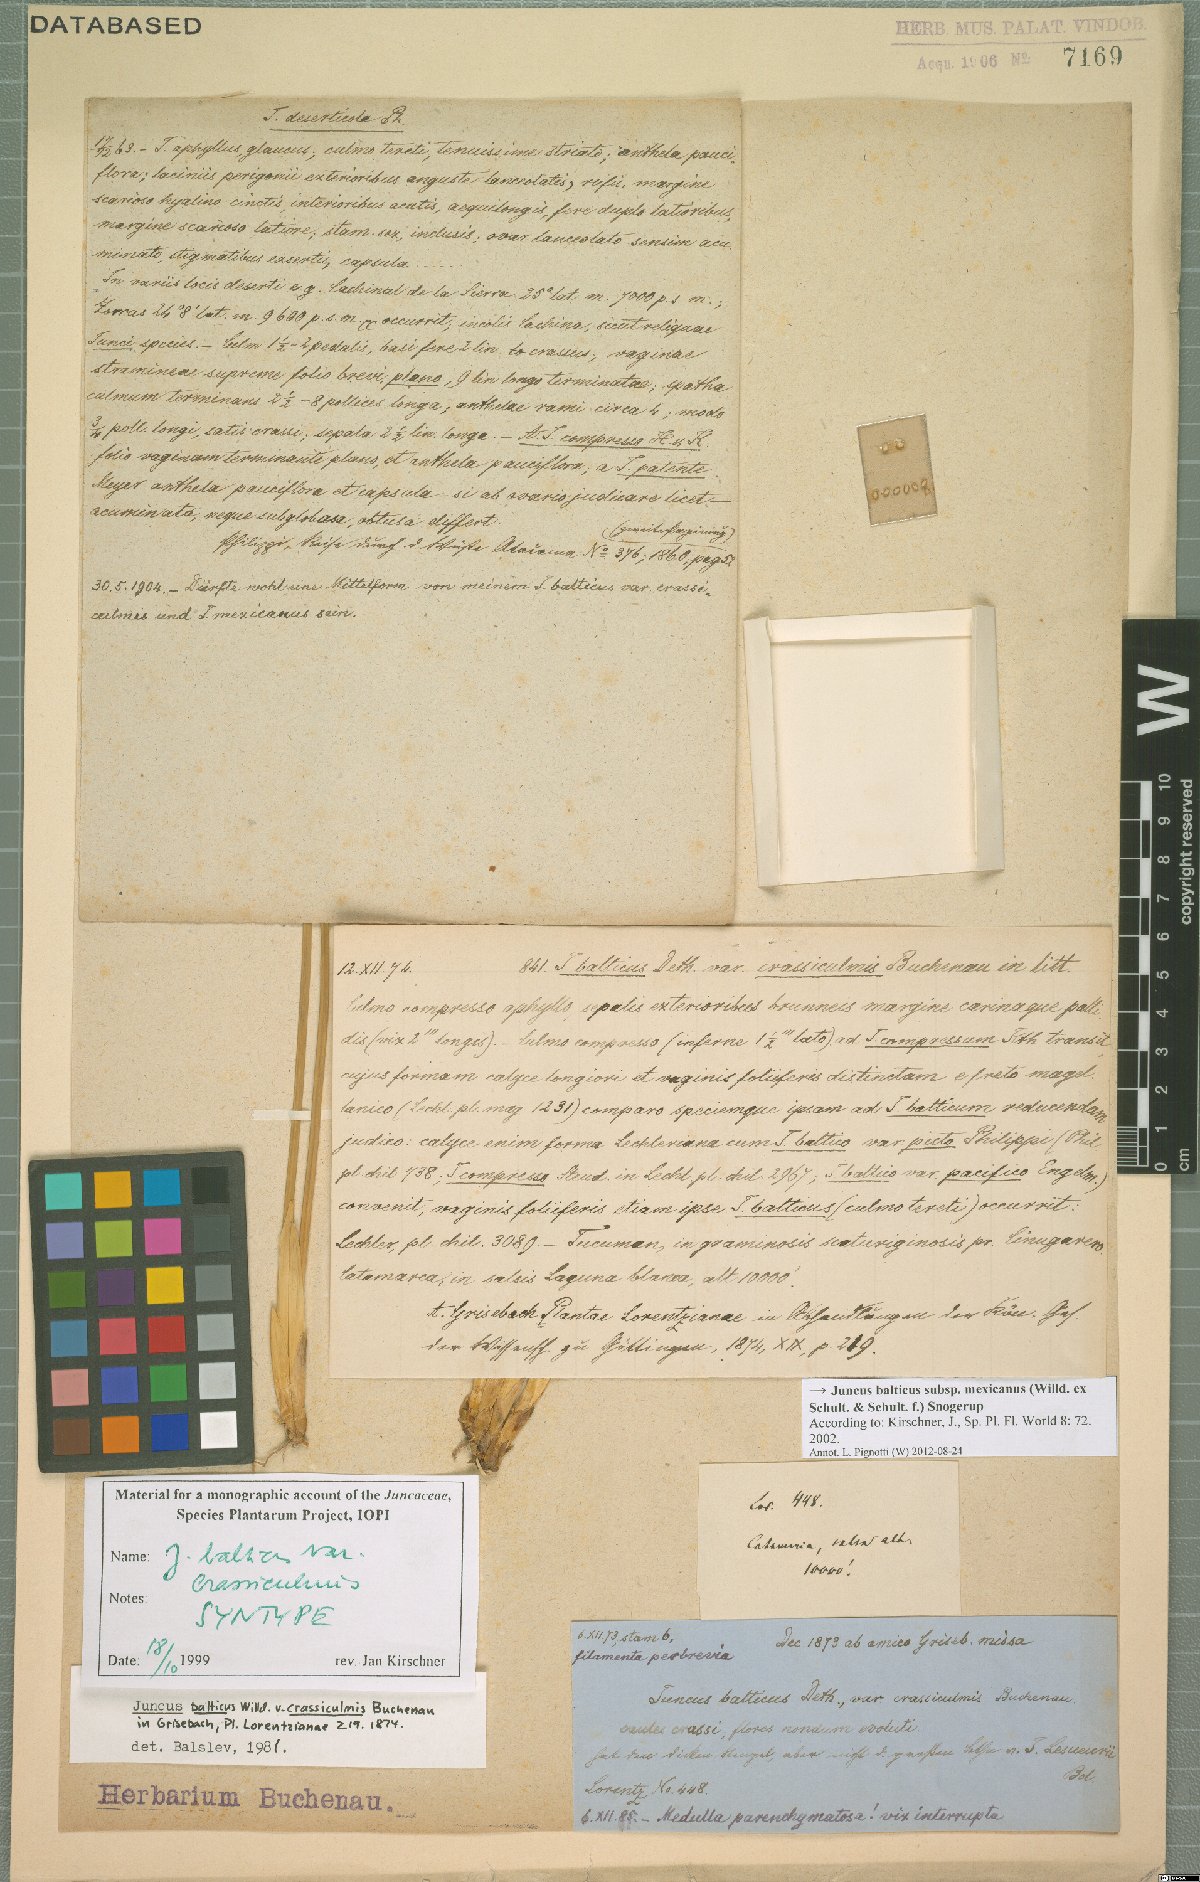 DATABASED
HERB. MUS. PALAT. VINDOB.
Acqu. 1906 No. 7169
J. deserticola Ph.
63. – J. aphyllus, glaucus; culmo tereti, tenuissime striato; anthela pauci-
flora; laciniis perigonii exterioribus anguste lanceolatis, rufis, margine
scarioso hyalino cinctis, interioribus acutis, aequilongis, fere duplo latioribus,
margine scarioso latiore; stam. sex, inclusis; ovar. lanceolato sensim acu-
minato, stigmatibus exsertis, capsula ......
In variis locis deserti e. g. Cachinal de la Sierra 25° lat. m. 7000 p. s. m.;
Zorras 24°8' lat. m. 9600 p. s. m. occurrit; incolis Cachina, sicut reliquae
Junci species. – Culm 1½–2 pedalis, basi fere 2 lin. crassus; vaginae
stramineae supreme folio brevi, plano, 9 lin longo terminatae; spatha
culmum terminans 2½–8 pollices longa; anthelae rami circa 4; modo
¾ poll. longi, satis crassi; sepala 2½ lin. longa. – A J. compresso H. u. K.
folio vaginam terminante plano, et anthela pauciflora; a J. patente
Meyer anthela pauciflora et capsula – si ab ovario judicare licet –
acuminata, neque subglobosa, obtusa differt.
Philippi, Reise durch d. Wüste Atacama, No 376, 1860, pag 52
30.5.1904. – Dürfte wohl eine Mittelform von meinem J. balticus var. crassi-
culmis und J. mexicanus sein.
000008
W
0 1 2 3 4 5 6 7 8 9 10
cm
copyright reserved
12.XII.74. 841. J. balticus Deth. var. crassiculmis Buchenau in litt.
Culmo compresso aphyllo, sepalis exterioribus brunneis margine carinaque palli-
dis (vix 2''' longis). – Culmo compresso (inferne 1½''' lato) ad J. compressum Kth transit
cujus formam calyce longiori et vaginis foliiferis distinctam e freto magel-
lanico (Lechl. pl. mag. 1231) comparo speciemque ipsam ad J. balticum reducendam
judico: calyce enim forma Lechleriana cum J. baltico var. picto Philippi (Phil.
pl. chil. 738; J. compresso Steud. in Lechl. pl. chil. 2967; J. baltico var. pacifico Engelm.)
convenit, vaginis foliiferis etiam ipse J. balticus (culmo tereti) occurrit:
Lechler, pl. chil. 3089 – Tucuman, in graminosis scaturiginosis pr.
Catamarca, in salsis Laguna blanca, alt 10000'.
A. Grisebach Plantae Lorentzianae in Abhandlungen der Kön. Ges.
der Wissensch. zu Göttingen, 1874, XIX, p 219.
→ Juncus balticus subsp. mexicanus (Willd. ex
Schult. & Schult. f.) Snogerup
According to: Kirschner, J., Sp. Pl. Fl. World 8: 72.
2002.
Annot. L. Pignotti (W) 2012-08-24
Lor. 448.
Catamarca, salsa alt.
10000'.
Material for a monographic account of the Juncaceae,
Species Plantarum Project, IOPI
Name: J. balticus var.
crassiculmis
Notes: SYNTYPE
Date: 18/10 1999 rev. Jan Kirschner
Juncus balticus Willd. v. crassiculmis Buchenau
in Grisebach, Pl. Lorentzianae 219. 1874.
det. Balslev, 1981.
Herbarium Buchenau.
6.XII.73, stam 6, Dec 1873 ab amico Griseb. missa
filamenta perbrevia
Juncus balticus Deth., var crassiculmis Buchenau.
caules crassi, flores nondum evoluti.
hat den dicken Stengel, aber nicht d. großen v. J. Lesueurii
Bol.
Lorentz No. 448.
6.XII.85. – Medulla parenchymatosa! vix interrupta